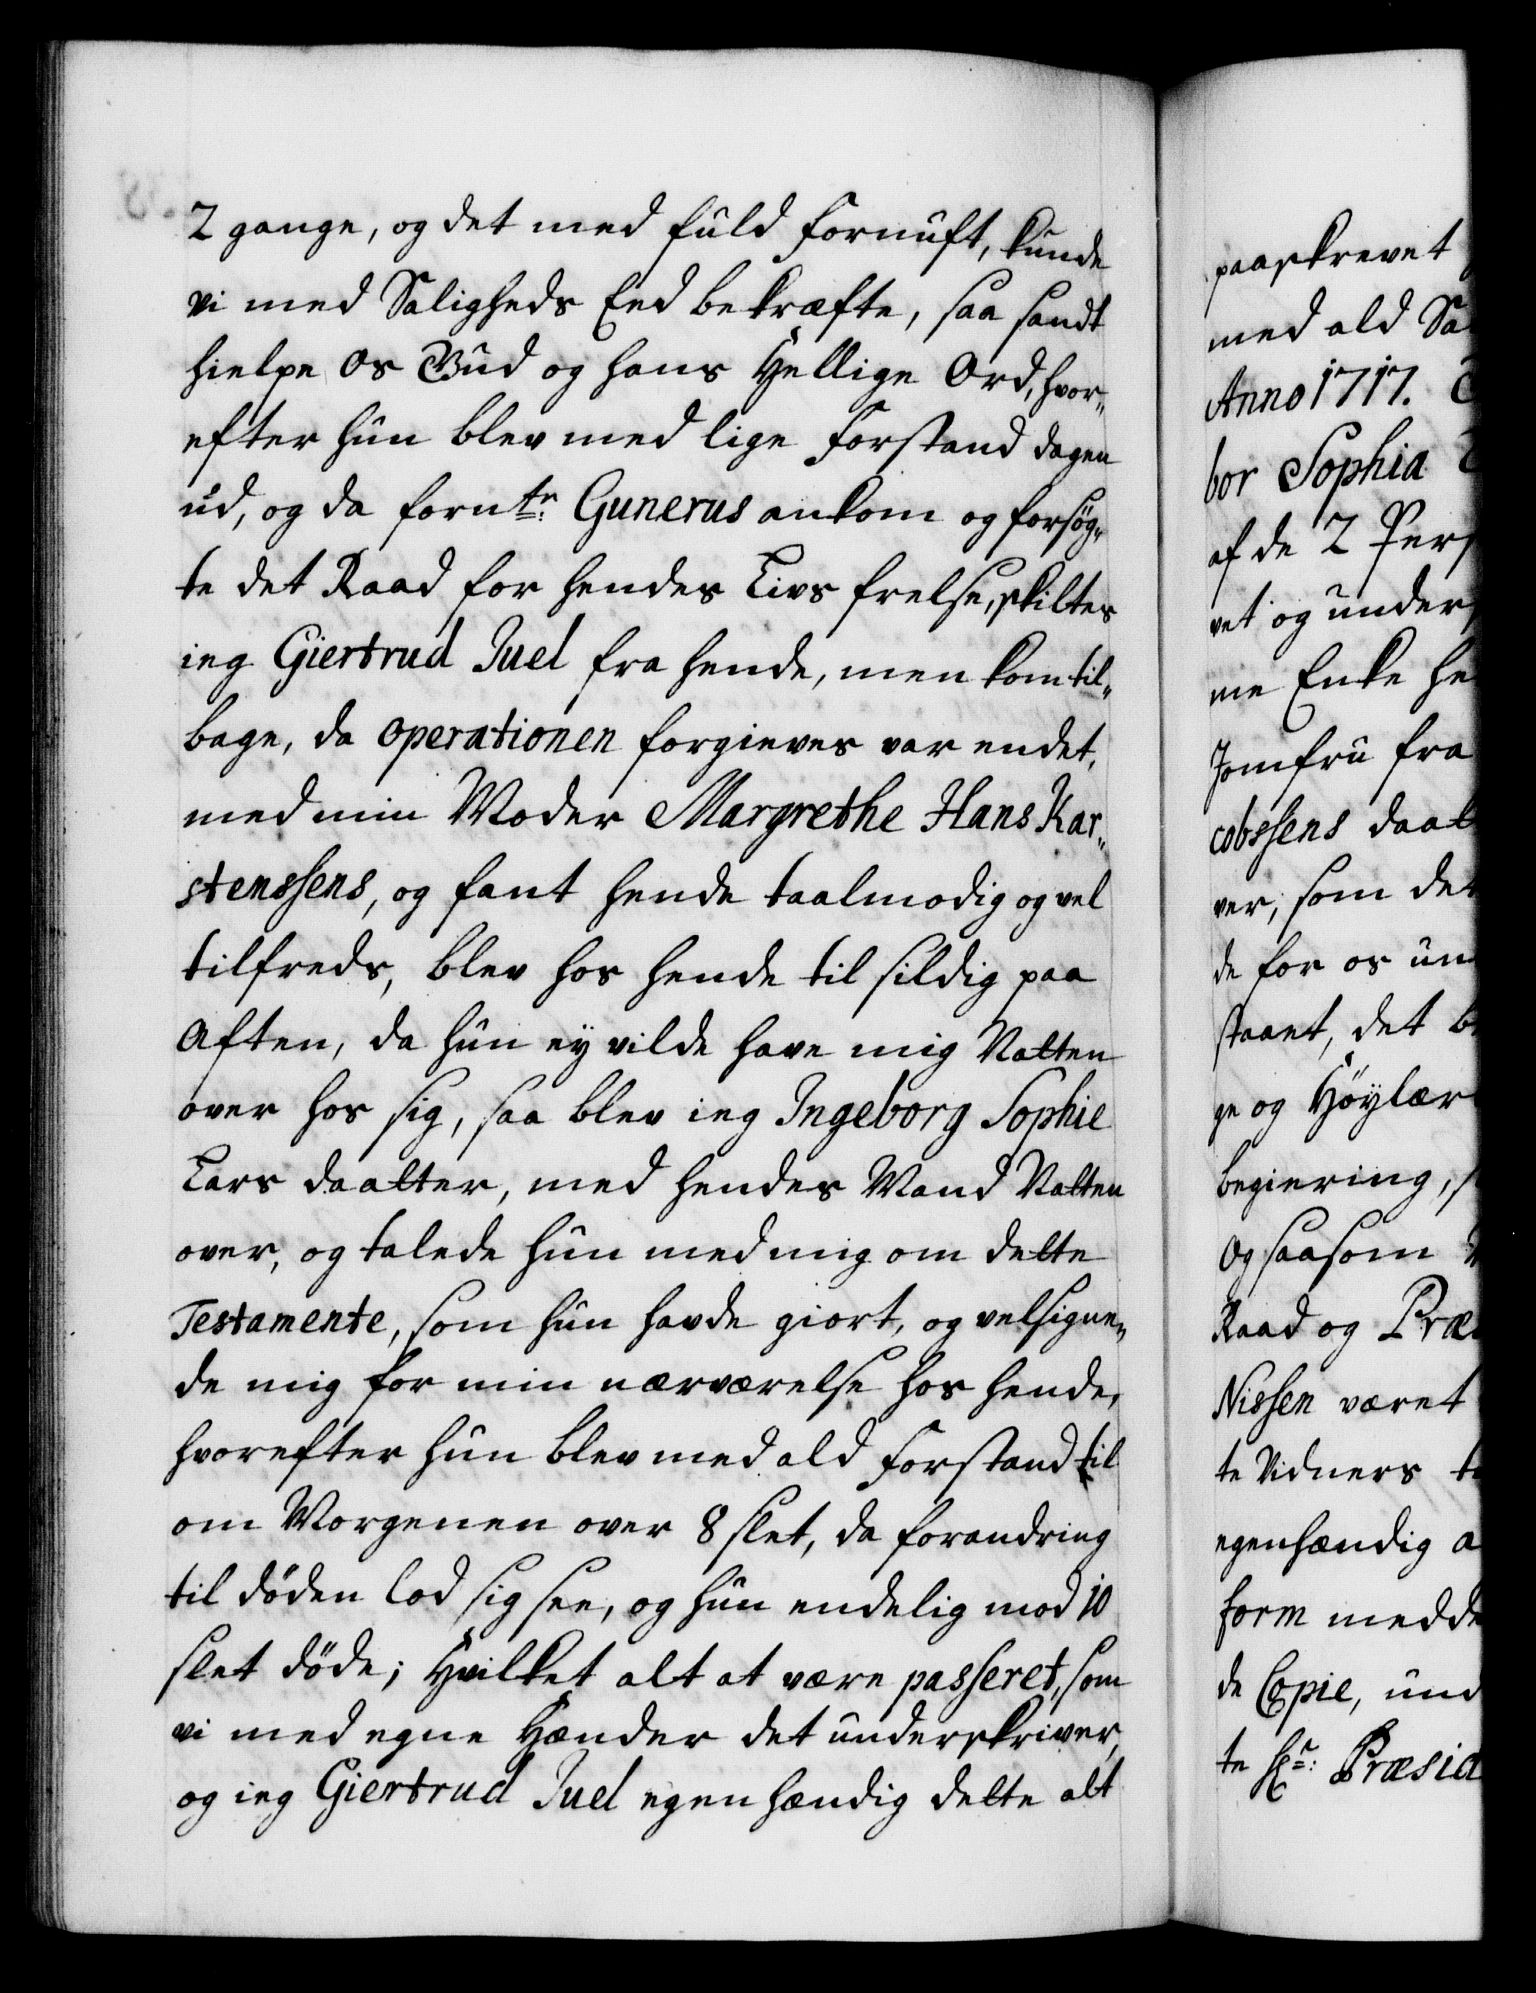 2 gange, og det med fuld fornuft, kunde
vi med Saligheds Eed bekræfte, saa sandt
hielpe os Gud og hans Hellige Ord, hvor„
efter hun blev med lige forstand dagen
ud, og da forn<sup>te</sup>: Gunerus ankom og forsøg„
te det Raad for hendes Livs frelse, skiltes
ieg Giertrud Juel fra hende, men kom til„
bage, da operationen forgieves var endet,
med min Moder Margrethe Hans Kar„
stenssens, og fant hende taalmodig og vel
tilfreds, blev hos hende til sildig paa
Aften, da hun ey vilde have mig Natten
over hos sig, saa blev ieg Ingeborg Sophie
Lars daatter, med hendes Mand Natten
over, og talede hun med mig om dette
Testamente, som hun havde giort, og velsigne„
de mig for min nærværelse hos hende,
hvorefter hun blev med ald Forstand til
om Morgenen over 8 slet, da forandring
til døden lod sig see, og hun endelig mod 10
slet døde; Hvilket alt at være passeret, som
vi med egne Hænder det underskriver,
og ieg Giertrud Juel egenhændig dette alt
paaskrevet
med ald Sa
Anno 1717.
bor Sophia
af de 2 Pers
vet og unders
me Enke he
Jomfru fra
cobssens daat
ver, som det
de for os un
staaet, det be
ge og Høylær
begiering, s
Og saasom
Raad og Præ
Nissen været
te Vidners
egenhændig a
form medde
de Copie, und
te Hr: Præsid